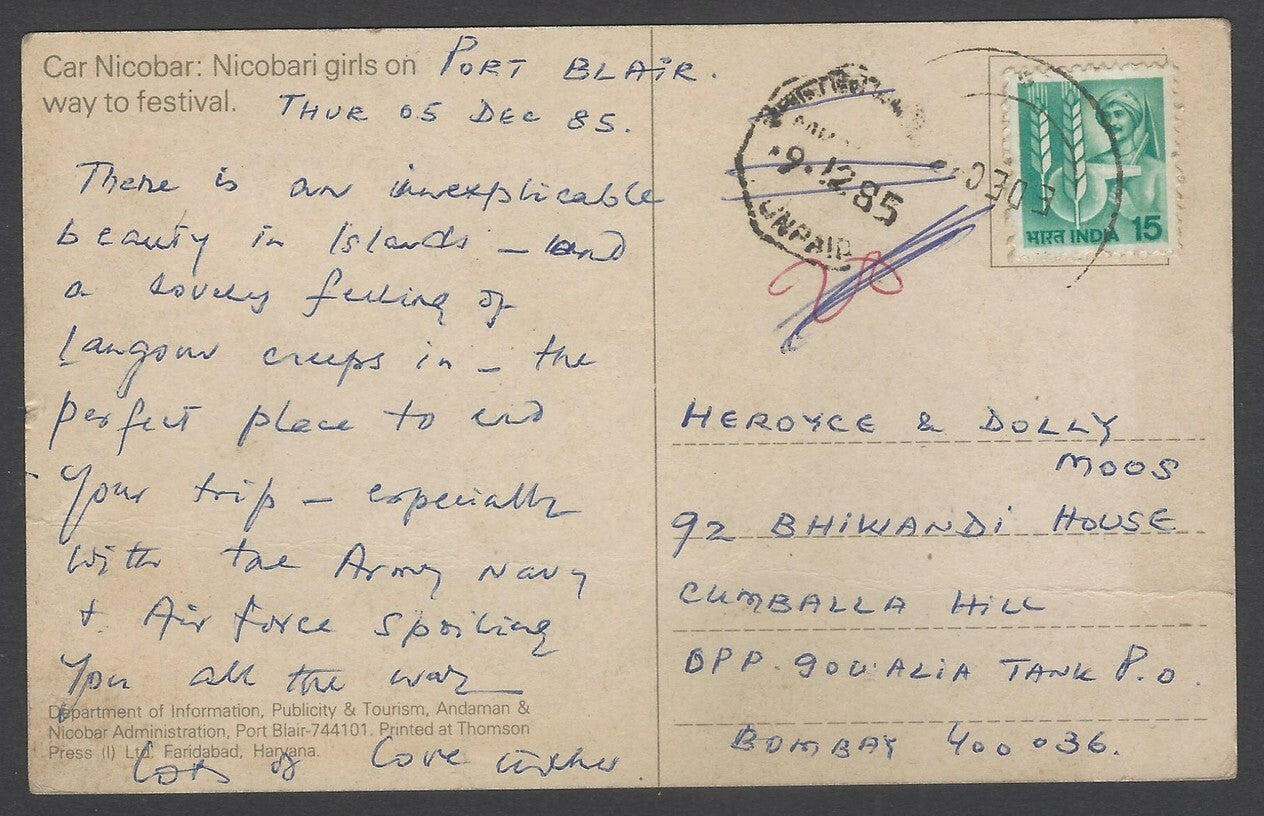 Car Nicobar: Nicobari girls on
way to festival.
PORT BLAIR.
THUR 05 DEC 85.
There is an inexplicable
beauty in Islands – and
a lovely feeling of
Langour creeps in – the
perfect place to end
your trip – especially
with the Army Navy
& Air force spoiling
you all the way
Department of Information, Publicity & Tourism, Andaman &
Nicobar Administration, Port Blair-744101. Printed at Thomson
Press (I) Ltd. Faridabad, Haryana.
Lots of Love
9.12.85
UNPAID
DEC
भारत INDIA 15
HEROYCE & DOLLY
MOOS
92 BHIWANDI HOUSE
CUMBALLA HILL
OPP. GOWALIA TANK P.O.
BOMBAY 400036.